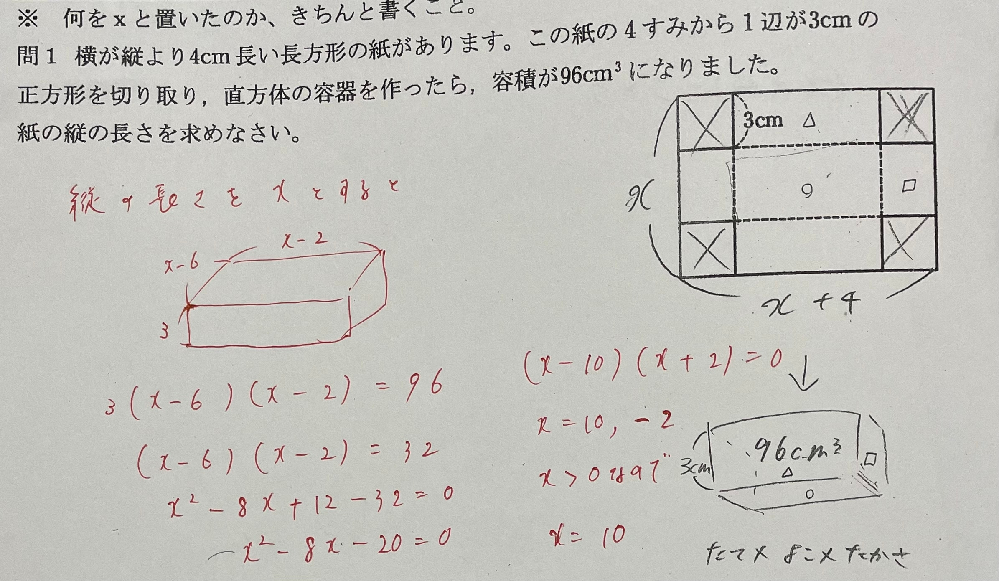 ※ 何をxと置いたのか、きちんと書くこと。
問1 横が縦より4cm長い長方形の紙があります。この紙の4すみから1辺が3cmの
正方形を切り取り，直方体の容器を作ったら，容積が96cm³になりました。
紙の縦の長さを求めなさい。
3cm △
○ □
x
x + 4
縦の長さを xとすると
x-2
x-6
3
3(x-6)(x-2) = 96
(x-6)(x-2) = 32
x² - 8x + 12 - 32 = 0
x² - 8x - 20 = 0
(x-10)(x+2) = 0
x = 10, -2
x > 0なので
x = 10
↓
96cm³
3cm
△ □
○
たて×よこ×たかさ